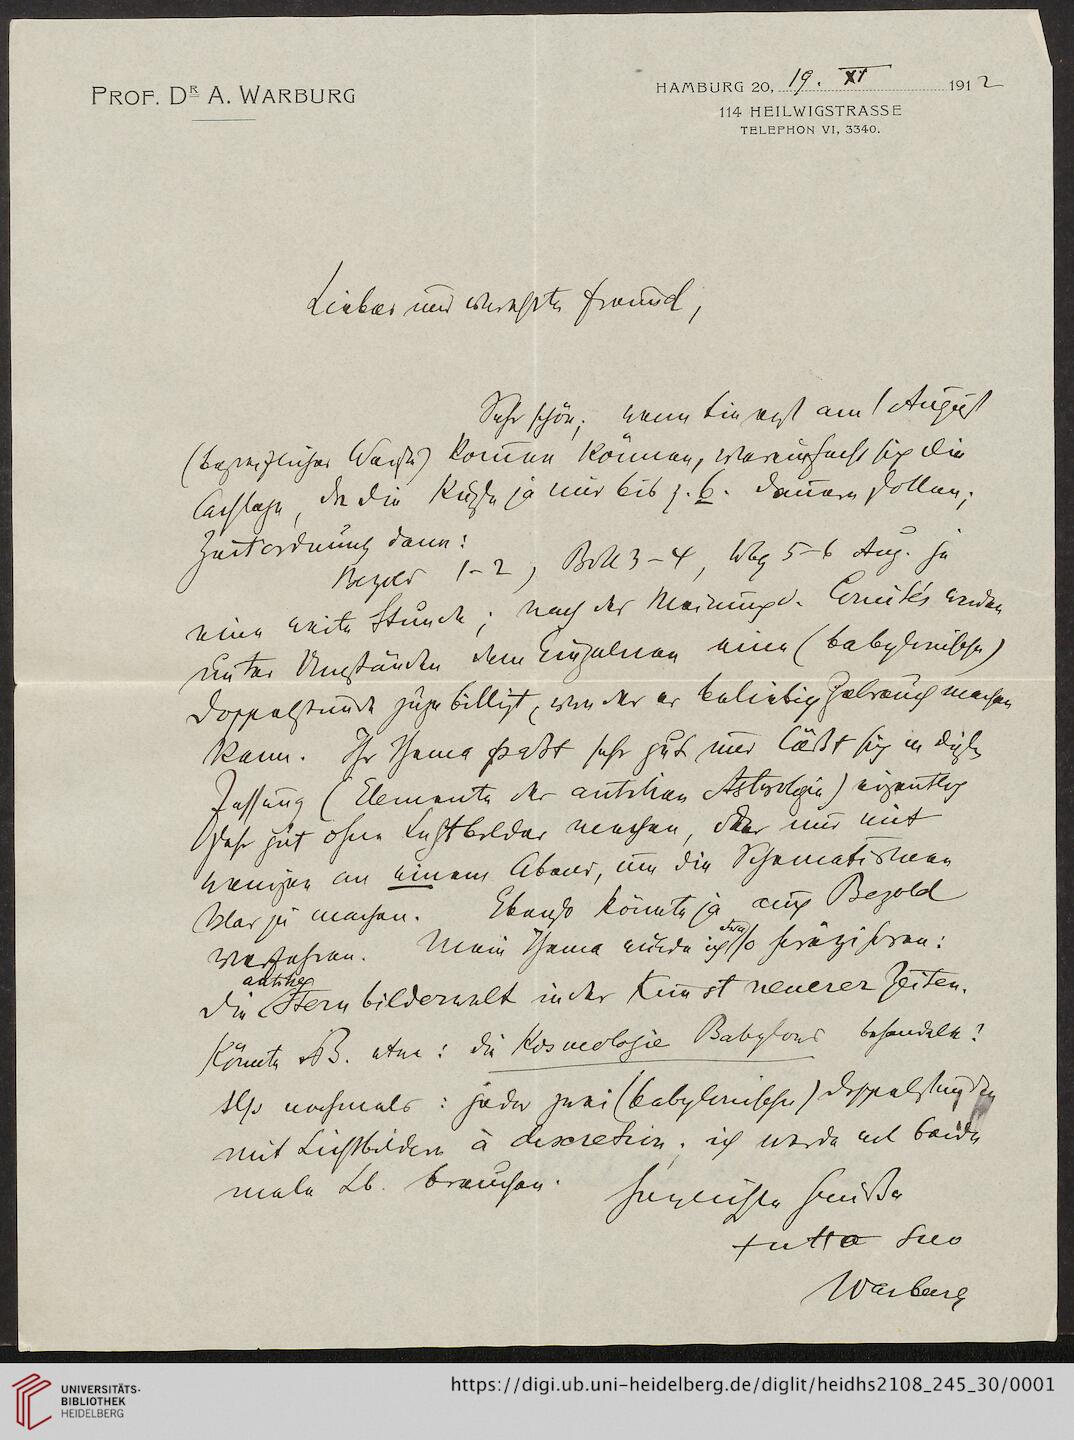 PROF. DR A. WARBURG
HAMBURG 20, 19. XI 1912
114 HEILWIGSTRASSE
TELEPHON VI, 3340.
Lieber und verehrter Freund,
Sehr schön; wenn Sie erst am 1 August
(begreiflicher Weise) kommen können, vereinfacht sich die
Sachlage, da die Kurse ja nur bis z. 6. dauern sollen;
Zeitordnung dann:
Bezold 1–2, Boll 3–4, Wbg 5–6 Aug. je
eine weite Stunde; nach der Meinung d. Comités werden
unter Umständen dem Einzelnen eine (babylonische)
Doppelstunde zugebilligt, von der er beliebig Gebrauch machen
kann. Ihr Thema paßt sehr gut und läßt sich in dieser
Fassung (Elemente der antiken Astrologie) eigentlich
sehr gut ohne Lichtbilder machen, oder nur mit
wenigen an einem Abend, um die Schematismen
klar zu machen. Ebenso könnte ja auch Bezold
verfahren. Mein Thema würde ich dann so präzisieren:
die antike Sternbilderwelt in der Kunst neuerer Zeiten.
Könnte B. etwa: die Kosmologie Babylons behandeln?
Also nochmals: jeder zwei (babylonische) Doppelstunden
mit Lichtbildern à discretion; ich werde beide
male Lb. brauchen.
Herzlichste Grüße
tutto suo
Warburg
UNIVERSITÄTS-
BIBLIOTHEK
HEIDELBERG
https://digi.ub.uni-heidelberg.de/diglit/heidhs2108_245_30/0001